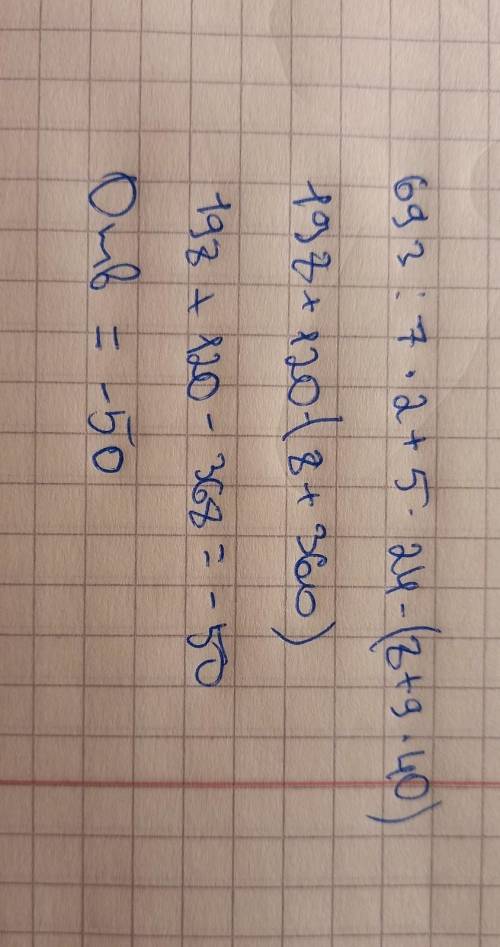 693 : 7 · 2 + 5 · 24 - (8 + 9 · 40)
198 + 120 - (8 + 360)
198 + 120 - 368 = -50
Отв = -50